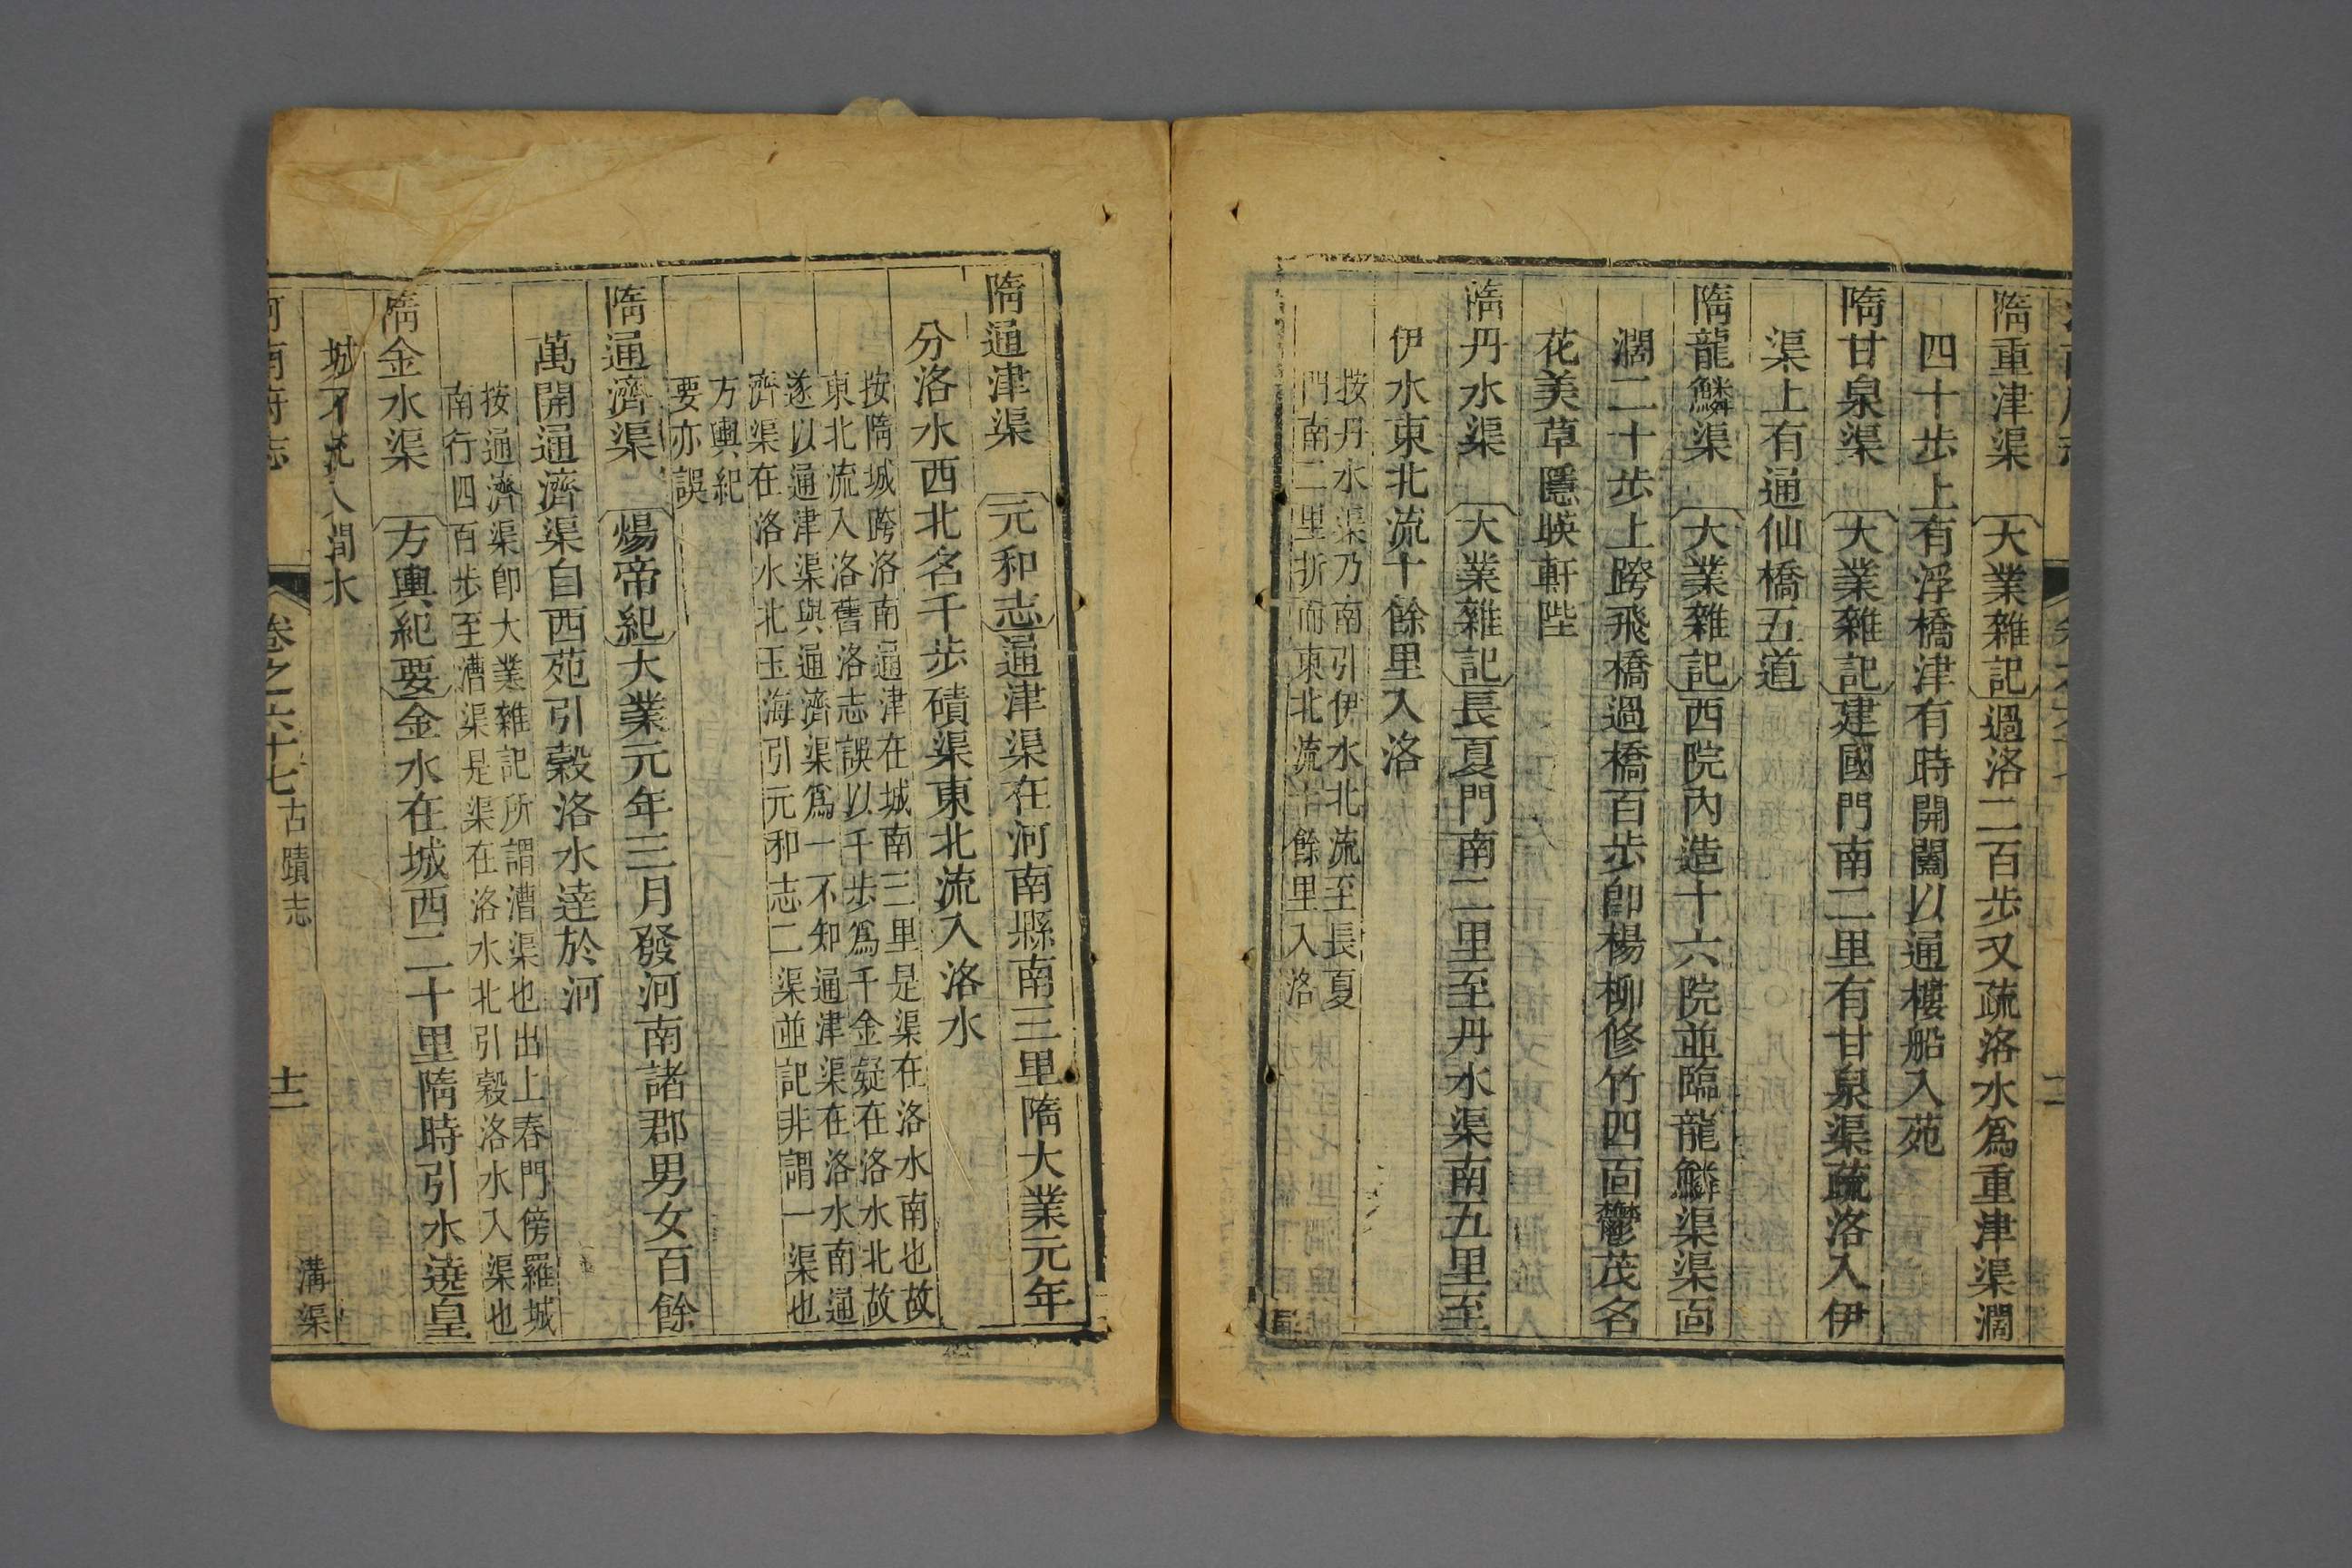 隋重津渠 大業雜記過洛二百步又疏洛水為重津渠濶
四十步上有浮橋津有時開闔以通樓船入苑
隋甘泉渠 大業雜記建國門南二里有甘泉渠疏洛入伊
渠上有通仙橋五道
隋龍鱗渠 大業雜記西院內造十六院並臨龍鱗渠渠面
濶二十步上跨飛橋過橋百步卽楊柳修竹四面鬱茂名
花美草隱暎軒陛
隋丹水渠 大業雜記長夏門南二里至丹水渠南五里至
伊水東北流十餘里入洛
按丹水渠乃南引伊水北流至長夏
門南二里折而東北流十餘里入洛
隋通津渠 元和志通津渠在河南縣南三里隋大業元年
分洛水西北名千步磧渠東北流入洛水
按隋城跨洛南通津在城南三里是渠在洛水南也故
東北流入洛舊洛志誤以千步爲千金疑在洛水北故
遂以通津渠與通濟渠爲一不知通津渠在洛水南通
濟渠在洛水北玉海引元和志二渠並記非謂一渠也
方輿紀
要亦誤
隋通濟渠 煬帝紀大業元年三月發河南諸郡男女百餘
萬開通濟渠自西苑引穀洛水達於河
按通濟渠卽大業雜記所謂漕渠也出上春門傍羅城
南行四百步至漕渠是渠在洛水北引穀洛水入渠也
隋金水渠 方輿紀要金水在城西二十里隋時引水遶皇
城下流入澗水
河南府志 卷之六十七 古蹟志 溝渠 十二